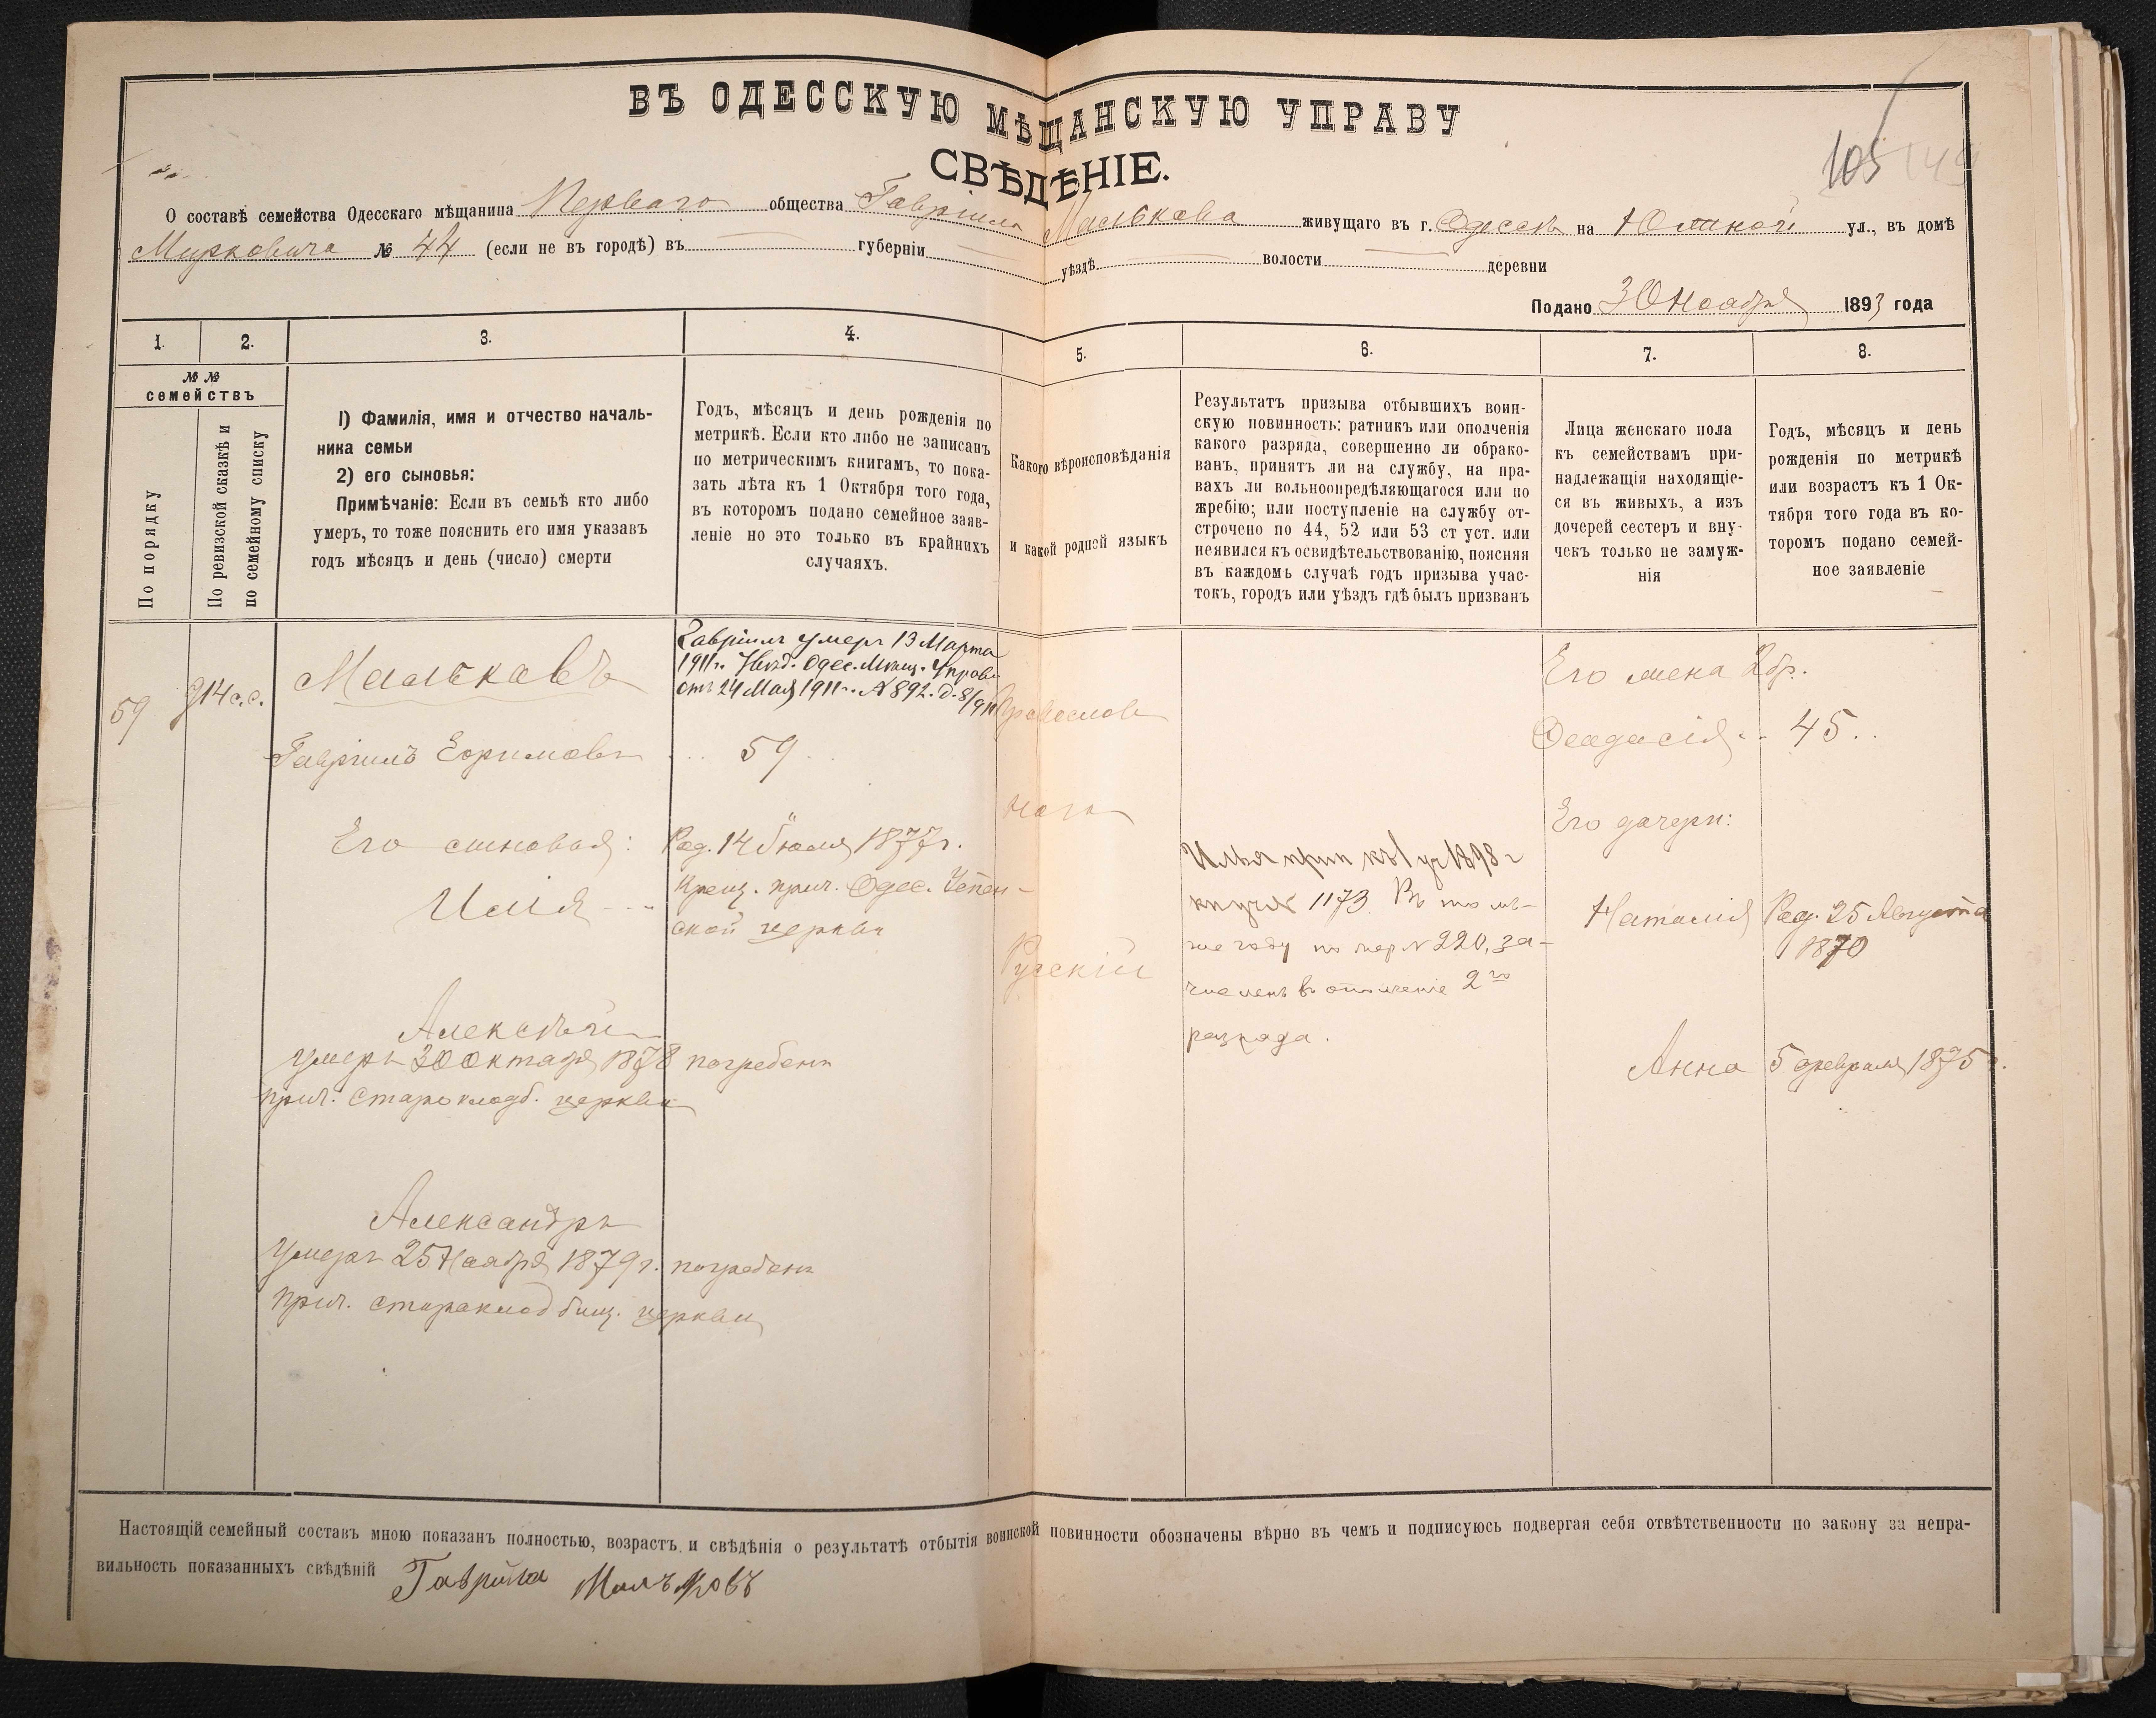 ВЪ ОДЕССКУЮ МѢЩАНСКУЮ УПРАВУ
СВѢДѢНІЕ.
105
О составѣ семейства Одесскаго мѣщанина Перваго общества Гавріила Малькова живущаго въ г. Одессѣ на Южной ул., въ домѣ
№ 44 (если не въ городѣ) въ — губерніи — уѣздѣ — волости — деревни
Подано 30 Ноября 1893 года
1. 2. 3. 4. 5. 6. 7. 8.
№ № семействъ
По порядку
По ревизской сказкѣ и
по семейному списку
1) Фамилія, имя и отчество началь-
ника семьи
2) его сыновья:
Примѣчаніе: Если въ семьѣ кто либо
умеръ, то тоже пояснить его имя указавъ
годъ мѣсяцъ и день (число) смерти
Годъ, мѣсяцъ и день рожденія по
метрикѣ. Если кто либо не записанъ
по метрическимъ книгамъ, то пока-
зать лѣта къ 1 Октября того года,
въ которомъ подано семейное заяв-
леніе но это только въ крайнихъ
случаяхъ.
Какого вѣроисповѣданія
и какой родной языкъ
Результатъ призыва отбывшихъ воин-
скую повинность: ратникъ или ополченія
какого разряда, совершенно ли обрако-
ванъ, принятъ ли на службу, на пра-
вахъ ли вольноопредѣляющагося или по
жребію; или поступленіе на службу от-
строчено по 44, 52 или 53 ст уст. или
неявился къ освидѣтельствованію, поясняя
въ каждомъ случаѣ годъ призыва учас-
токъ, городъ или уѣздъ гдѣ былъ призванъ
Лица женскаго пола
къ семействамъ при-
надлежащія находящіе-
ся въ живыхъ, а изъ
дочерей сестеръ и вну-
чекъ только не замуж-
нія
Годъ, мѣсяцъ и день
рожденія по метрикѣ
или возрастъ къ 1 Ок-
тября того года въ ко-
торомъ подано семей-
ное заявленіе
59
914 с.с.
Мальковъ
Гавріилъ Ефимовъ
Его сыновья:
Илія
Алексѣй
умеръ 30 Октября 1878 погребенъ
прич. Старокладб. церкви
Александръ
Умеръ 25 Ноября 1879 г. погребенъ
прич. старокладбищ. церкви
Гавріилъ умеръ 13 Марта
1911 г. Увѣд. Одес. Мѣщ. Управы
отъ 24 Мая 1911 г. № 892. д. 8/911
59
Род. 14 Іюля 1877 г.
Крещ. прич. Одес. Успен-
ской церкви
Православ
наго
Русскій
Илья прип къ 1 уч 1898 г
1173. Въ томъ-
же году по жер № 220, за-
численъ въ ополченіе 2го
разряда.
Его жена 2 бр.
Феодосія 45
Его дочери:
Наталія Род. 25 Августа
1870
Анна 5 февраля 1875 г.
Настоящій семейный составъ мною показанъ полностью, возрастъ и свѣдѣнія о результатѣ отбытія воинской повинности обозначены вѣрно въ чемъ и подписуюсь подвергая себя отвѣтственности по закону за непра-
вильность показанныхъ свѣдѣній Гаврила Мальковъ